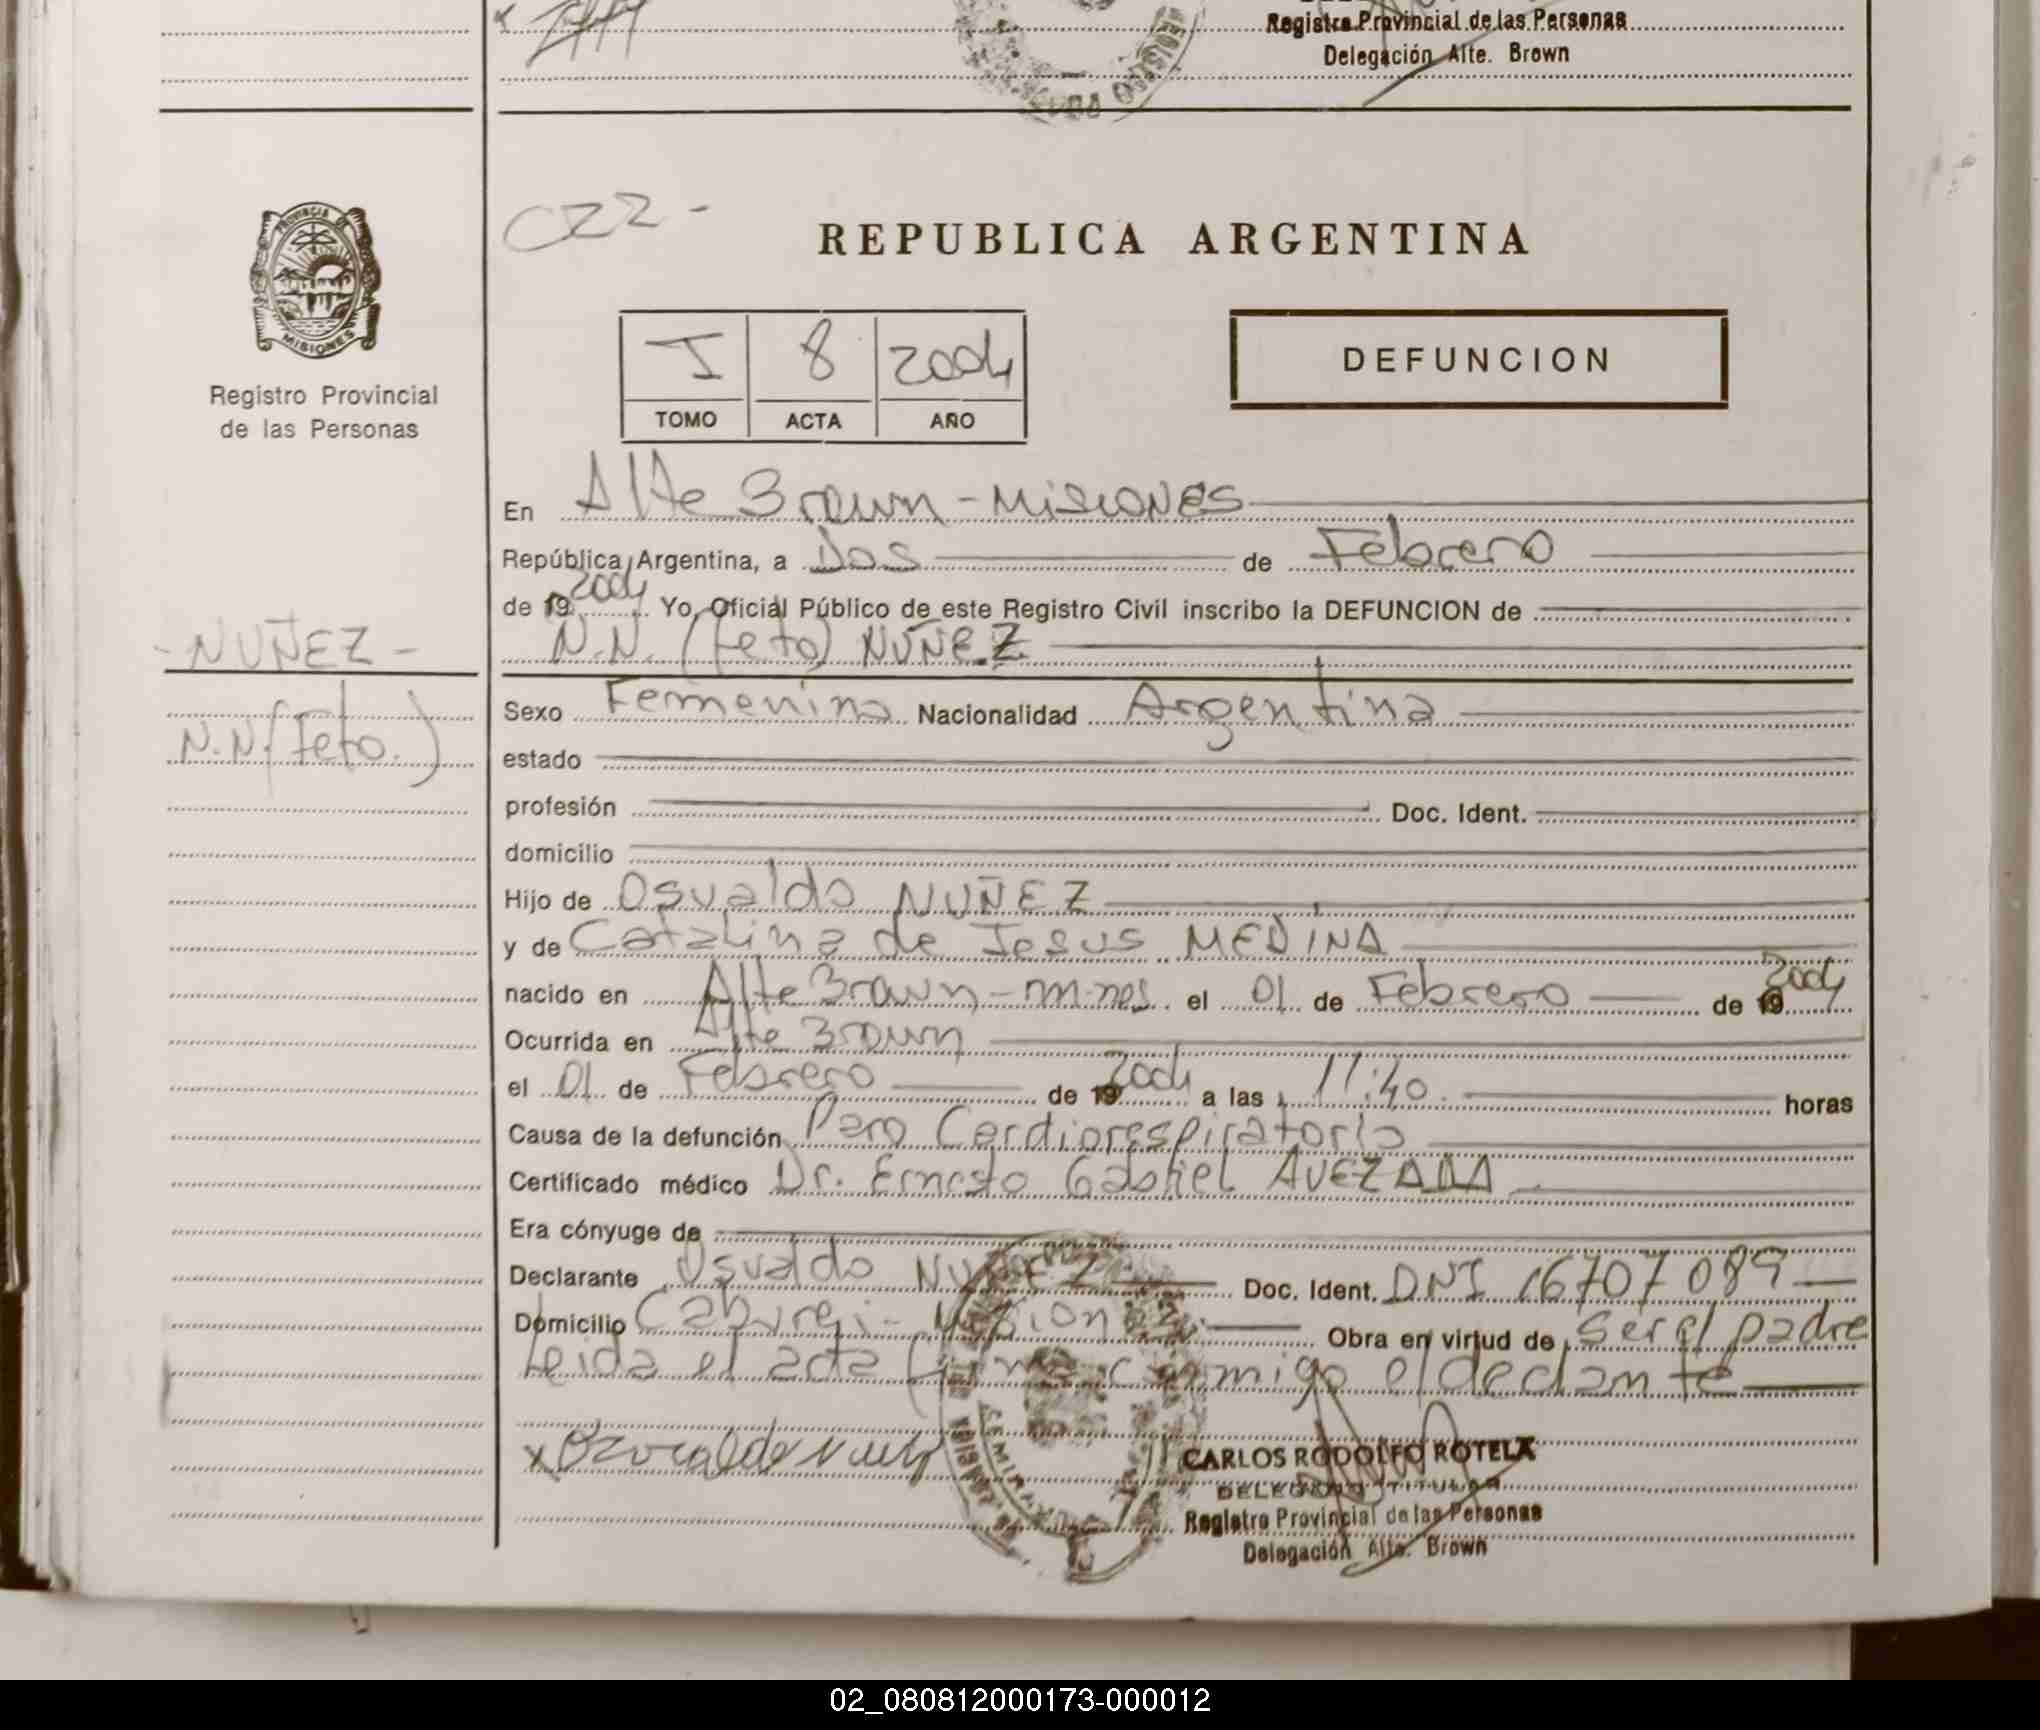 Registro Provincial de las Personas
Delegación Alte. Brown
PROVINCIA DE
MISIONES
Registro Provincial
de las Personas
C22-
REPUBLICA ARGENTINA
I 8 2004
TOMO ACTA AÑO
DEFUNCION
En Alte Brown - Misiones
República Argentina, a Dos de Febrero
de 19 2004 Yo, Oficial Público de este Registro Civil inscribo la DEFUNCION de
N.N. (Feto) NUÑEZ
- NUÑEZ -
N.N. (Feto.)
Sexo Femenino Nacionalidad Argentina
estado
profesión Doc. Ident.
domicilio
Hijo de Osvaldo NUÑEZ
y de Catalina de Jesus MEDINA
nacido en Alte Brown - M-nes el 01 de Febrero de 19 2004
Ocurrida en Alte Brown
el 01 de Febrero de 19 2004 a las 11:40. horas
Causa de la defunción Paro Cardiorespiratorio
Certificado médico Dr. Ernesto Gabriel AVEZADA
Era cónyuge de
Declarante Osvaldo NUÑEZ Doc. Ident. DNI 16707089
Domicilio Caburei - Misiones. Obra en virtud de ser el padre
Leida el acta firma conmigo el declante
x Osvaldo Nuñez
CARLOS RODOLFO ROTELA
DELEGADO TITULAR
Registro Provincial de las Personas
Delegación Alte. Brown
02_080812000173-000012